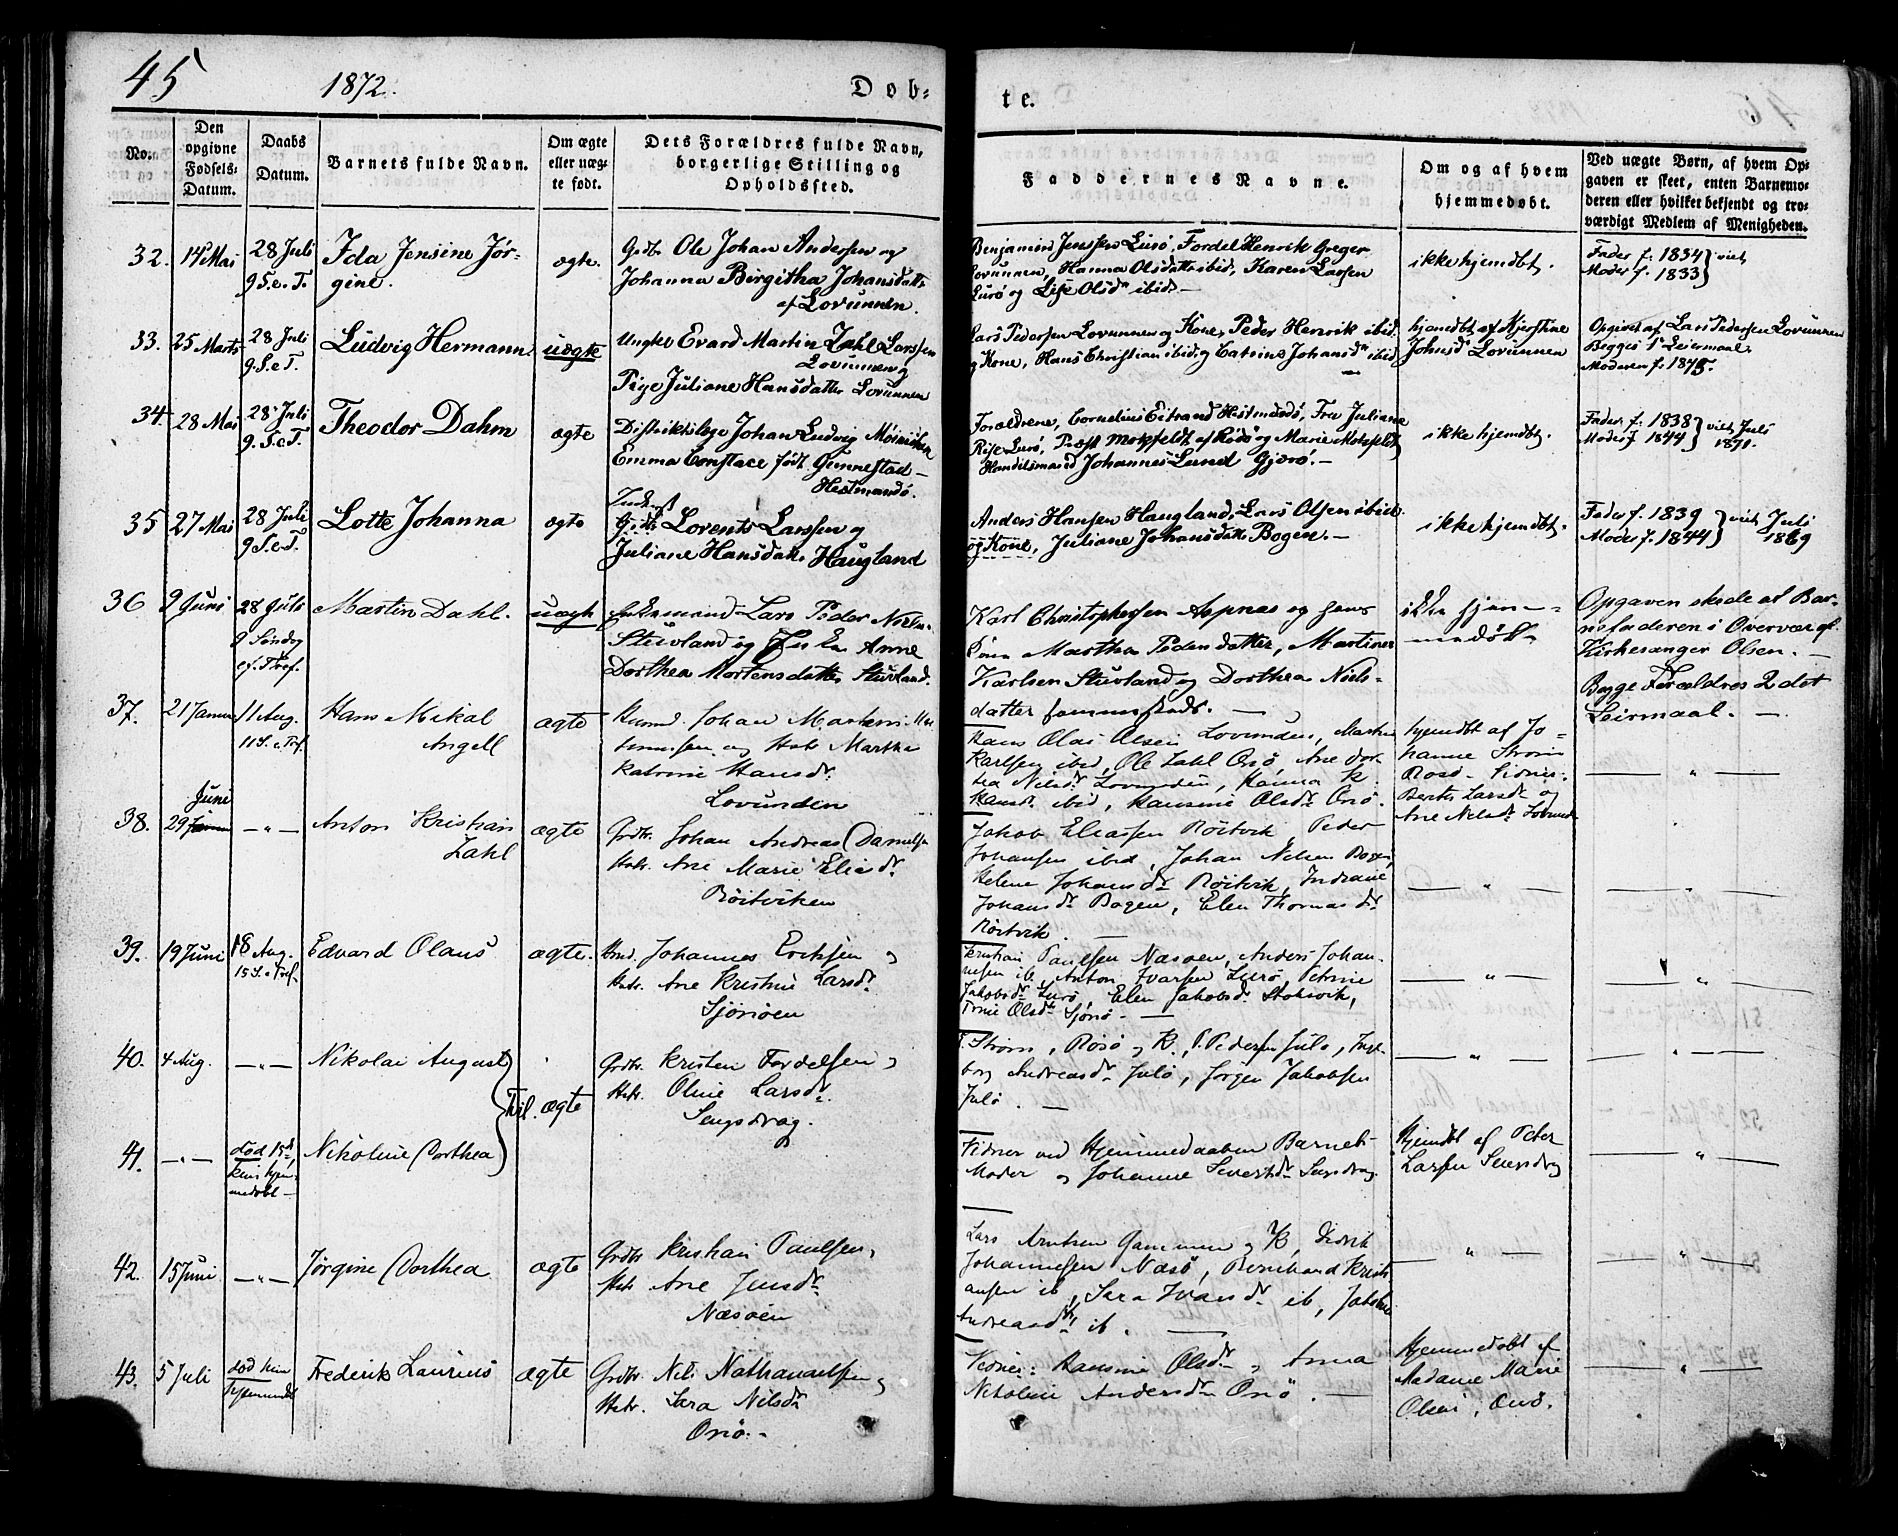 45
1872.
Døb-
te.
No.
Den
opgivne
Fødsels-
Datum.
Daabs
Datum.
Barnets fulde Navn.
Om ægte
eller uæg-
te født.
Dets Forældres fulde Navn,
borgerlige Stilling og
Opholdssted.
Faddernes Navne.
Om og af hvem
hjemmedøbt.
Ved uægte Børn, af hvem Op-
gaven er skeet, enten Barnemo-
deren eller hvilket bekjendt og tro-
værdigt Medlem af Menigheden.
32.
14 Mai
28 Juli
9 S. e. T.
Ida Jensine Jør-
gine.
ægte.
Grdbr. Ole Johan Andersen og
Johanna Birgitha Johansdattr
af Lovunnen.
Benjamin Jenssen Lurø, Fordel Henrik Greger
Lovunnen, Hanna Olsdattr ibid, Karen Larsen
Lurø og Lise Olsdr ibid. —
ikke hjemdbt.
Fader f. 1834
Moder f. 1833
viet
33.
25 Marts
28 Juli
9. S. e. T.
Ludvig Hermann.
uægte
Ungkr Evard Martin Zahl Larssen
Lovunnen og
Pige Juliane Hansdatter Lovunnen
Lars Pedersen Lovunnen og Kone, Peder Henrik ibid.
og Kone, Hans Christian ibid. og Catrine Johansdr ibid
—
hjemdbt af Kjerstine
Johnsdr Lovunnen
Opgivet af Lars Pedersen Lovunnen
Begges 1ste Leiermaal.
Moderen f. 1845.
34.
28 Mai
28 Juli
9. S. e. T.
Theodor Dahm
ægte
Distriktslæge Johan Ludvig
Emma Constace født Gunnestad —
Hestmandø.
Forældrene, Cornelius Hestmandø, Fru Juliane
Lurø, Præst Motzfeldt af Rødø og Marie Motzfeldt
Handelsmand Johannes Lund Gjerø. —
ikke hjemdbt.
Fader f. 1838
Moder f. 1844
viet Juli
1871.
35
27 Mai
28 Juli
9 S. e. T.
Lotte Johanna
ægte
Grdbr Lorents Larssen og
Juliane Hansdatr Haugland
Anders Hansen Haugland, Lars Olsen ibid.
og Kone, Juliane Johansdattr Bogen. —
ikke hjemdbt.
Fader f. 1839
Moder f. 1844
viet Juli
1869
36
9 Juni
28 Juli
9 Søndag
ef. Tref.
Martin Dahl.
uægte
Enkemand Lars Peder
Stuvland og Anne
Dorthea Mortensdatter Stuvland.
Karl Christophersen Aspnæs og hans
Martha Pedersdatter, Martines
Karlsen Stuvland og Dorthea Niels-
datter sammesteds. —
ikke hjem-
medøbt
Opgaven skede af Bar-
nefaderen i Overvær af
Kirkesanger Olsen. —
Begge Forældres 2det
Leiermaal. —
37.
21 Januar
11 Aug.
11 S. e. Tref.
Hans Mikal
Angell
ægte
Johan Martens
og Hstr Martha
Katrine Hansdr.
Lovunden
Hans Olai Olsen Lovunden,
Karlsen ibid, Ole Zahl Onø, Ane Dor-
tea Nilsdr Lovunden, Hanna K.
Hansdr. ibid, Hansine Olsdr Onø.
hjemdbt af Jo-
hanne Strøm
Rosø.
Berthe Larsdr og
Ane Nilsdr Lovund
— " —
38.
29 Juni
— " —
Anton Kristian
Zahl
ægte
Grdbr. Johan Andreas Danielsen
Hstr. Ane Marie Eliasdr.
Røitviken
Jakob Eliassen Røitvik, Peder
Johansen ibid, Johan Nilsen Bogen,
Helene Johansdr Røitvik, Indiane
Johansdr Bogen, Elen Thomasdr
Røitvik. —
— " —
— " —
39.
19 Juni
18 Aug.
15 S. e. Tref.
Edvard Olaus
ægte.
Johannes Eriksen og
Hstr. Ane Kristine Larsdr.
Sjørøen
Kristian Paulsen Næsøen, Anders Johan-
nesen ib, Anton Ivarsen Lurø, Petrine
Jakobsdr Lurø, Elen Jakobsdr Stokvik,
Olsdr Sjonø. —
— " —
— " —
40.
4 Aug.
— " —
Nikolai August
Tvil. ægte
Grdbr. Kristen Fordelsen og
Hstr. Oline Larsdr.
Sengsdrag.
Strøm, Rosø og K., P. Pedersen Julø, Inge-
borg Andreasdr Julø, Jørgen Jakobsen
Julø. —
— " —
— " —
41.
— " —
død 15de
kun hjem-
medøbt —
Nikoline Dorthea
Vidner ved Hjemmedaaben Barnets
Moder og Johanne Sivertsdr
Hjemdbt af Peter
Larsen
— " —
42.
15 Juni
— " —
Jørgine Dorthea
ægte
Grdbr Kristian Paulsen,
Hstr Ane Jensdr.
Næsøen
Lars Arntsen og K, Didrik
Johannessen Næsø, Bernhard Kristi-
ansen ib, Sara Ivarsdr ib, Jakobine
Andreasdr ib. —
— " —
— " —
43.
5 Juli
død kun
hjemmedbt
Frederik Laurius
ægte
Grdbr. Nils Nathanaelsen og
Hstr. Sara Nilsdr
Onø. —
Vidner: Hansine Olsdr og Anna
Nikoline Andersdr Onø. —
Hjemmedøbt af
Madame Marie
Olsen, Onø.
— " —